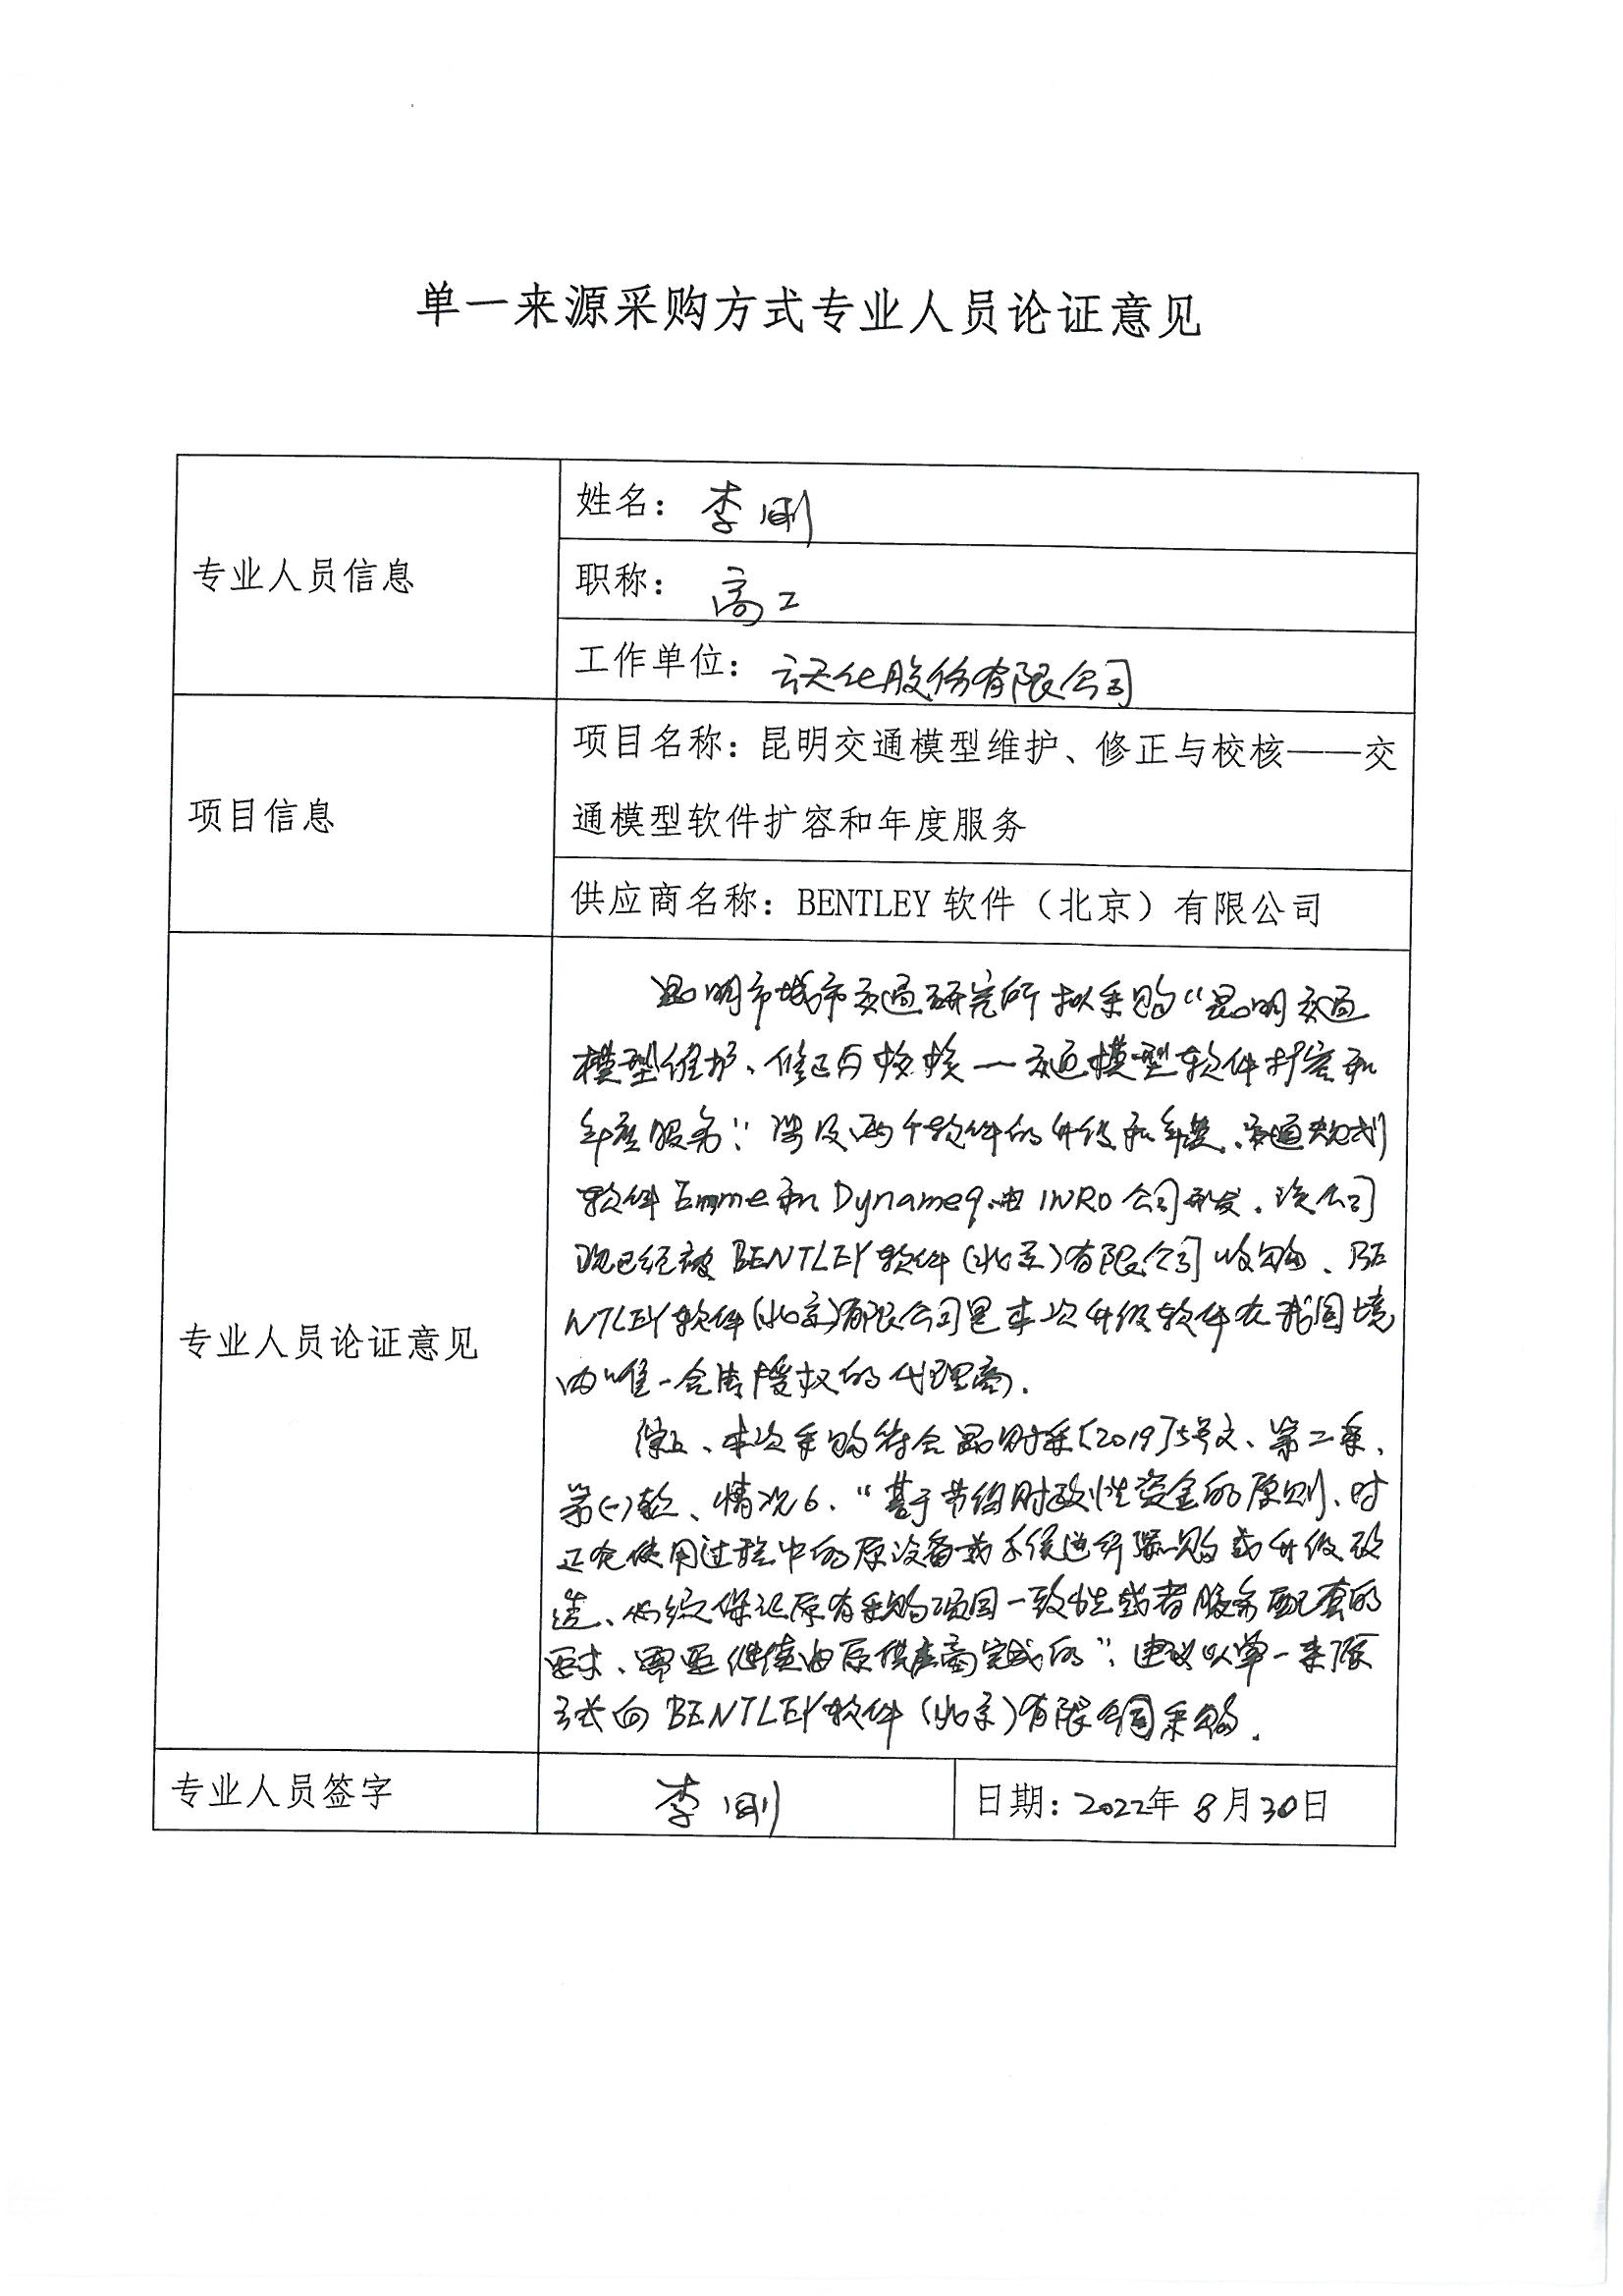 单一来源采购方式专业人员论证意见
专业人员信息
姓名：李刚
职称：高工
工作单位：云天化股份有限公司
项目信息
项目名称：昆明交通模型维护、修正与校核——交
通模型软件扩容和年度服务
供应商名称：BENTLEY软件（北京）有限公司
专业人员论证意见
昆明市城市交通研究所拟采购“昆明交通
模型维护、修正与校核—交通模型软件扩容和
年度服务”涉及两个软件的升级和年度，交通规划
软件Emme和Dynameq由INRO公司开发，该公司
现已经被BENTLEY软件(北京)有限公司收购、BE
NTLEY软件(北京)有限公司是本次升级软件在我国境
内唯一合法授权的代理商.
综上、本次采购符合昆财采〔2019〕5号文、第二条、
第(一)款、情况6、“基于节约财政性资金的原则、对
正在使用过程中的原设备或系统进行添购或升级改
造、必须保证原有采购项目一致性或者服务配套的
要求、需要继续由原供应商完成的”，建议以单一来源
方式向BENTLEY软件(北京)有限公司采购.
专业人员签字
李刚
日期：2022年8月30日